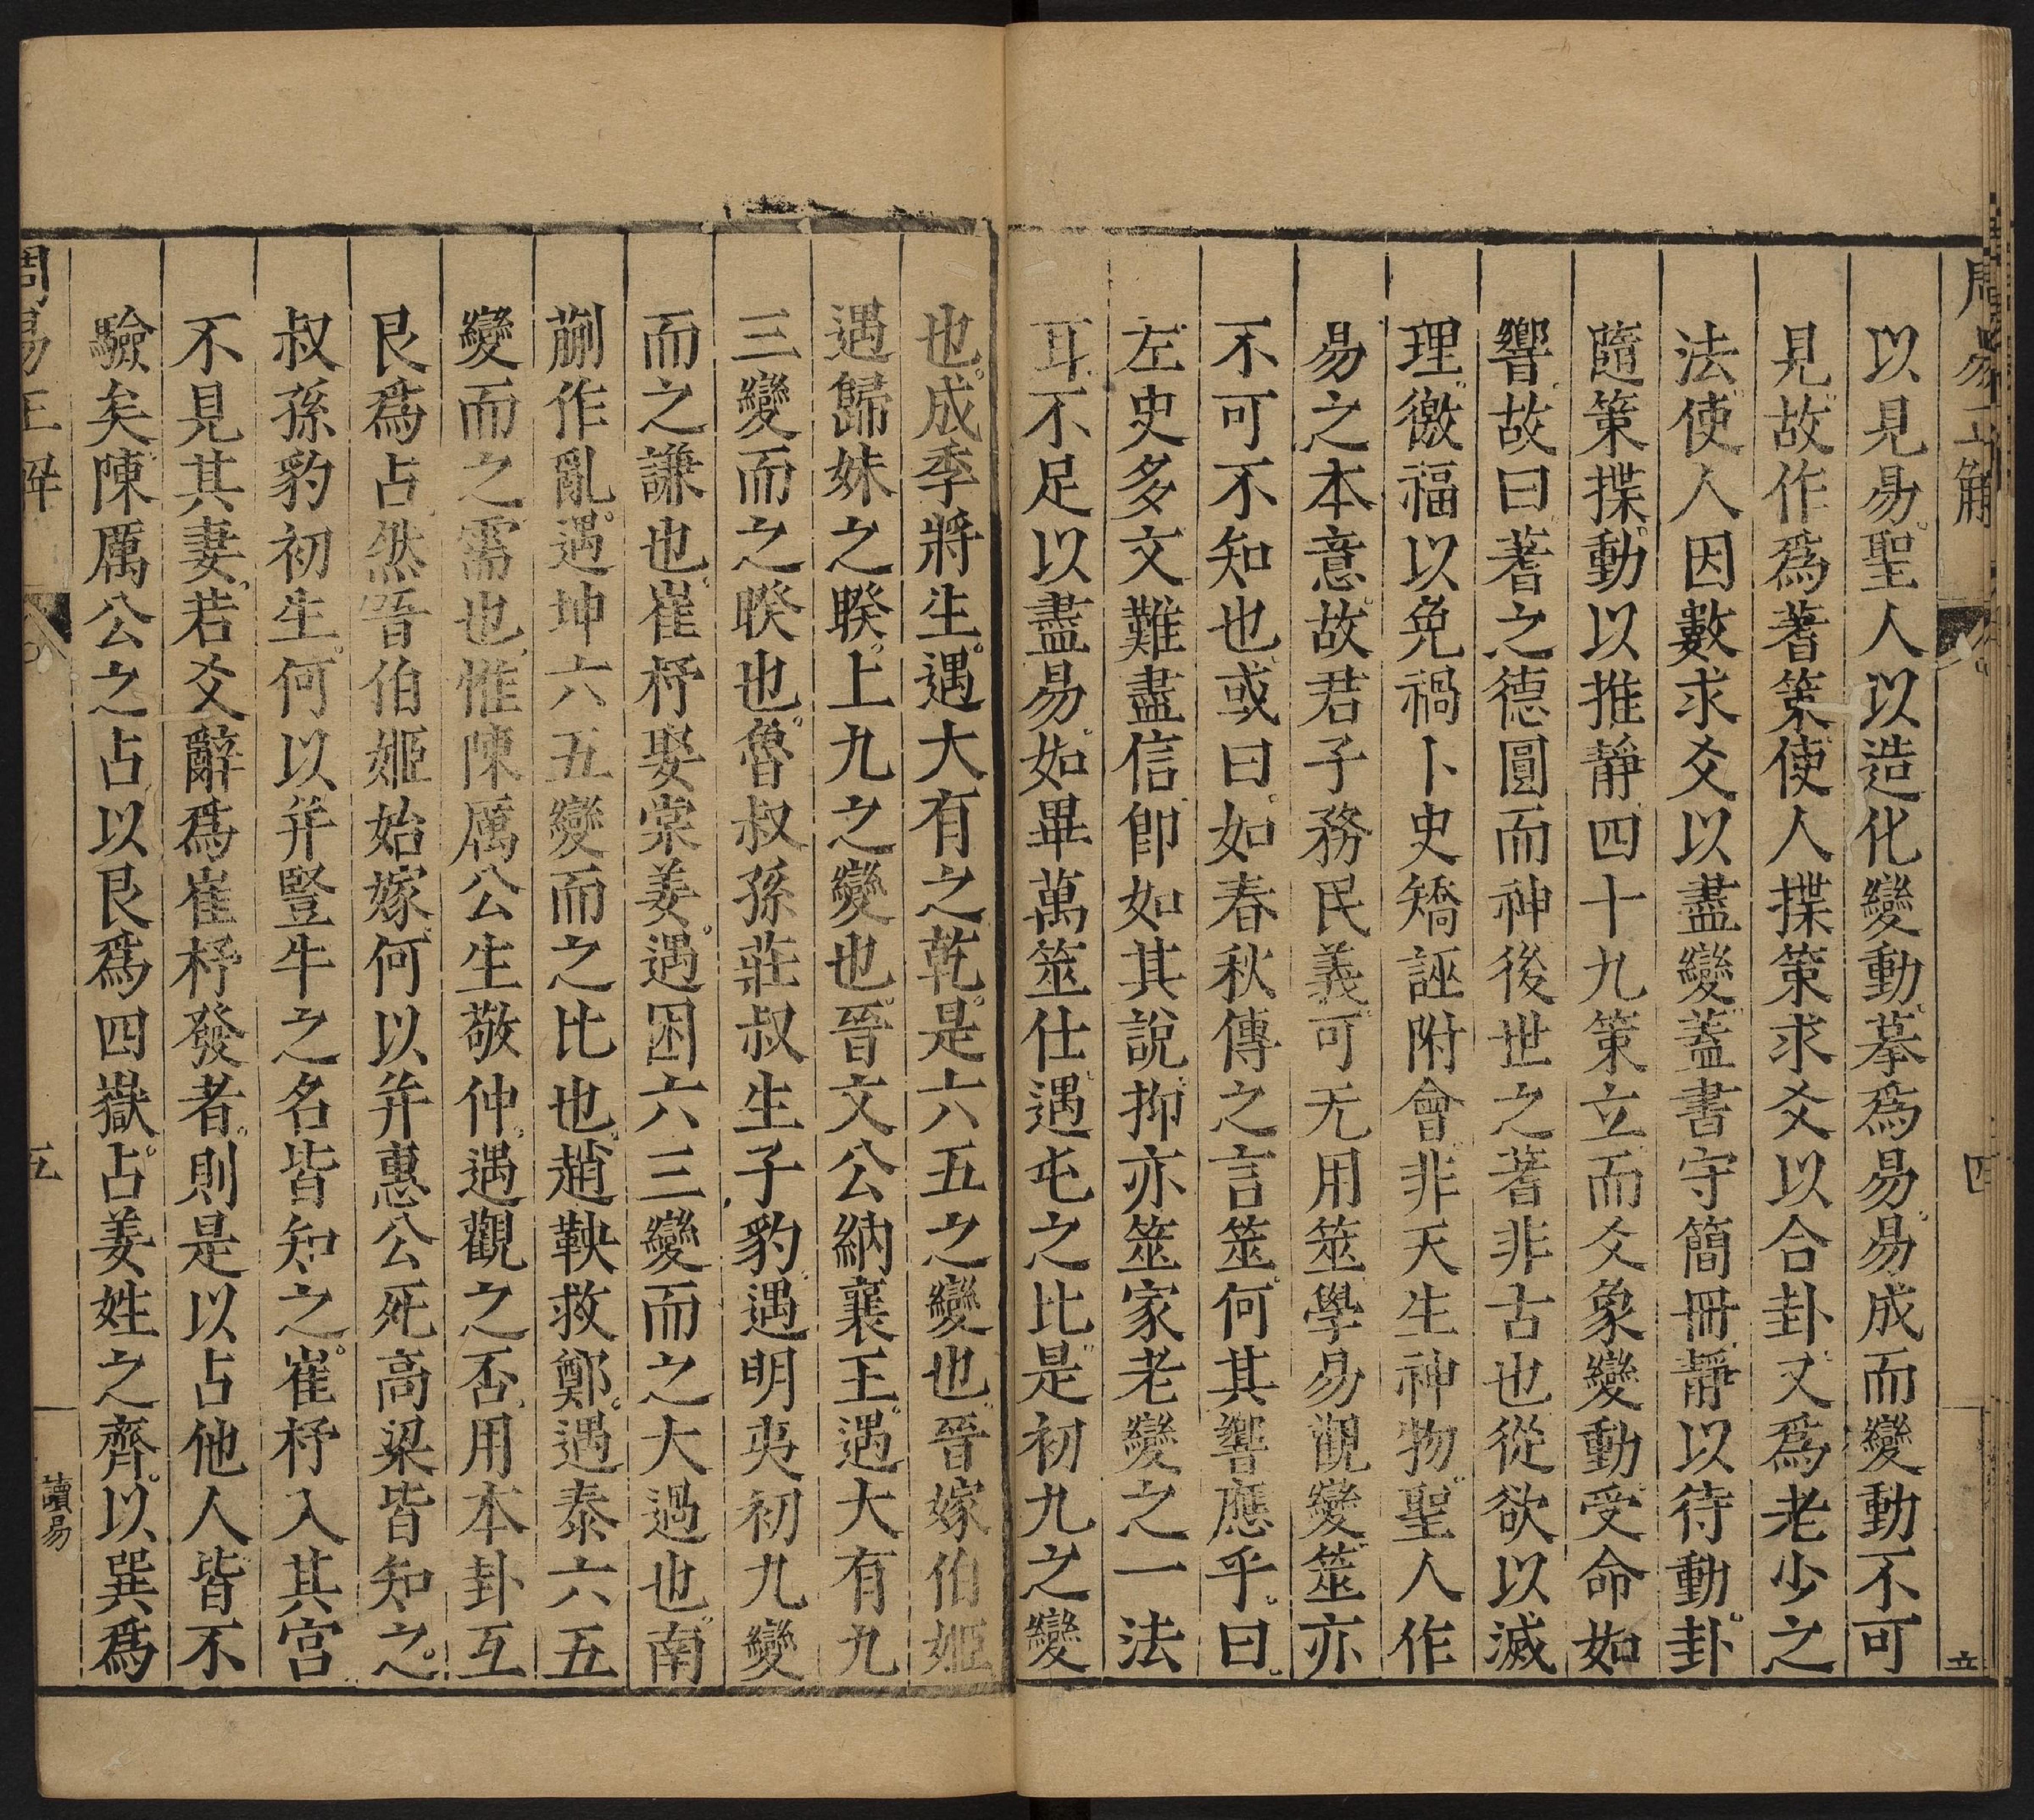 周易正解 四
以見易聖人以造化變動摹爲易易成而變動不可
見故作爲蓍策使人揲策求爻以合卦又爲老少之
法使人因數求爻以盡變蓋書守簡冊靜以待動卦
隨策揲動以推靜四十九策立而爻象變動受命如
響故曰蓍之德圓而神後世之蓍非古也從欲以滅
理徼福以免禍卜史矯誣附會非天生神物聖人作
易之本意故君子務民義可无用筮學易觀變筮亦
不可不知也或曰如春秋傳之言筮何其響應乎曰
左史多文難盡信卽如其說抑亦筮家老變之一法
耳不足以盡易如畢萬筮仕遇屯之比是初九之變
也成季將生遇大有之乾是六五之變也晉嫁伯姬
遇歸妹之睽上九之變也晉文公納襄王遇大有九
三變而之睽也魯叔孫莊叔生子豹遇明夷初九變
而之謙也崔杼娶棠姜遇困六三變而之大過也南
蒯作亂遇坤六五變而之比也趙鞅救鄭遇泰六五
變而之需也惟陳厲公生敬仲遇觀之否用本卦互
艮爲占然晉伯姬始嫁何以幷惠公死高梁皆知之
叔孫豹初生何以幷豎牛之名皆知之崔杼入其宮
不見其妻若爻辭爲崔杼發者則是以占他人皆不
驗矣陳厲公之占以艮爲四嶽占姜姓之齊以巽爲
周易正解 五 讀易